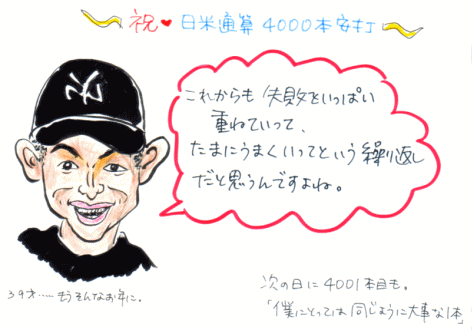 祝♥日米通算4000本安打
NY
これからも失敗をいっぱい
重ねていって、
たまにうまくいってという繰り返し
だと思うんですよね。
39才……もうそんなお年に。
次の日に4001本目も。
「僕にとっては同じように大事な1本」